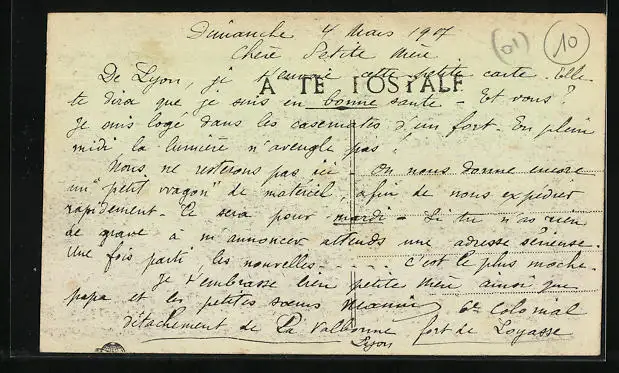 Dimanche 4 Mars 1917
(01)
10
Chère Petite Mère
CARTE POSTALE
De Lyon, je t'envoie cette petite carte. Elle
te dira que je suis en bonne santé - Et vous ?
Je suis logé dans les casemates d'un fort. En plein
midi la lumière n'aveugle pas !
Nous ne resterons pas ici - On nous donne encore
un "petit wagon" de matériel, afin de nous expédier
rapidement - Ce sera pour mardi - Si tu n'as rien
de grave à m'annoncer attends une adresse sérieuse.
Une fois parti les nouvelles . . . . . c'est le plus moche.
Je t'embrasse bien petite mère ainsi que
papa et les petites soeurs 6e Colonial
détachement de La Valbonne fort de Loyasse
Lyon